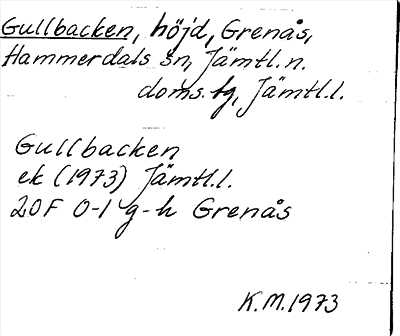 Gullbacken, höjd, Grenås,
Hammerdals sn, Jämtl. n.
doms. tg, Jämtl.l.
Gullbacken
ek (1973) Jämtl.l.
20F 0-1 g-h Grenås
K.M. 1973